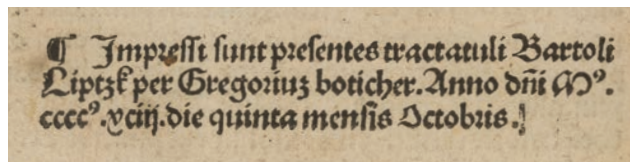 ¶ Impressi sunt presentes tractatuli Bartoli
Liptzk per Gregoriuꝫ boticher. Anno dn̄i Mꝰ.
ccccꝰ.xciij. die quinta mensis Octobris.